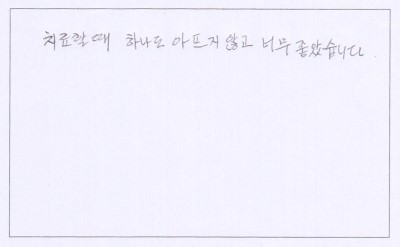 치료할 때 하나도 아프지 않고 너무 좋았습니다.